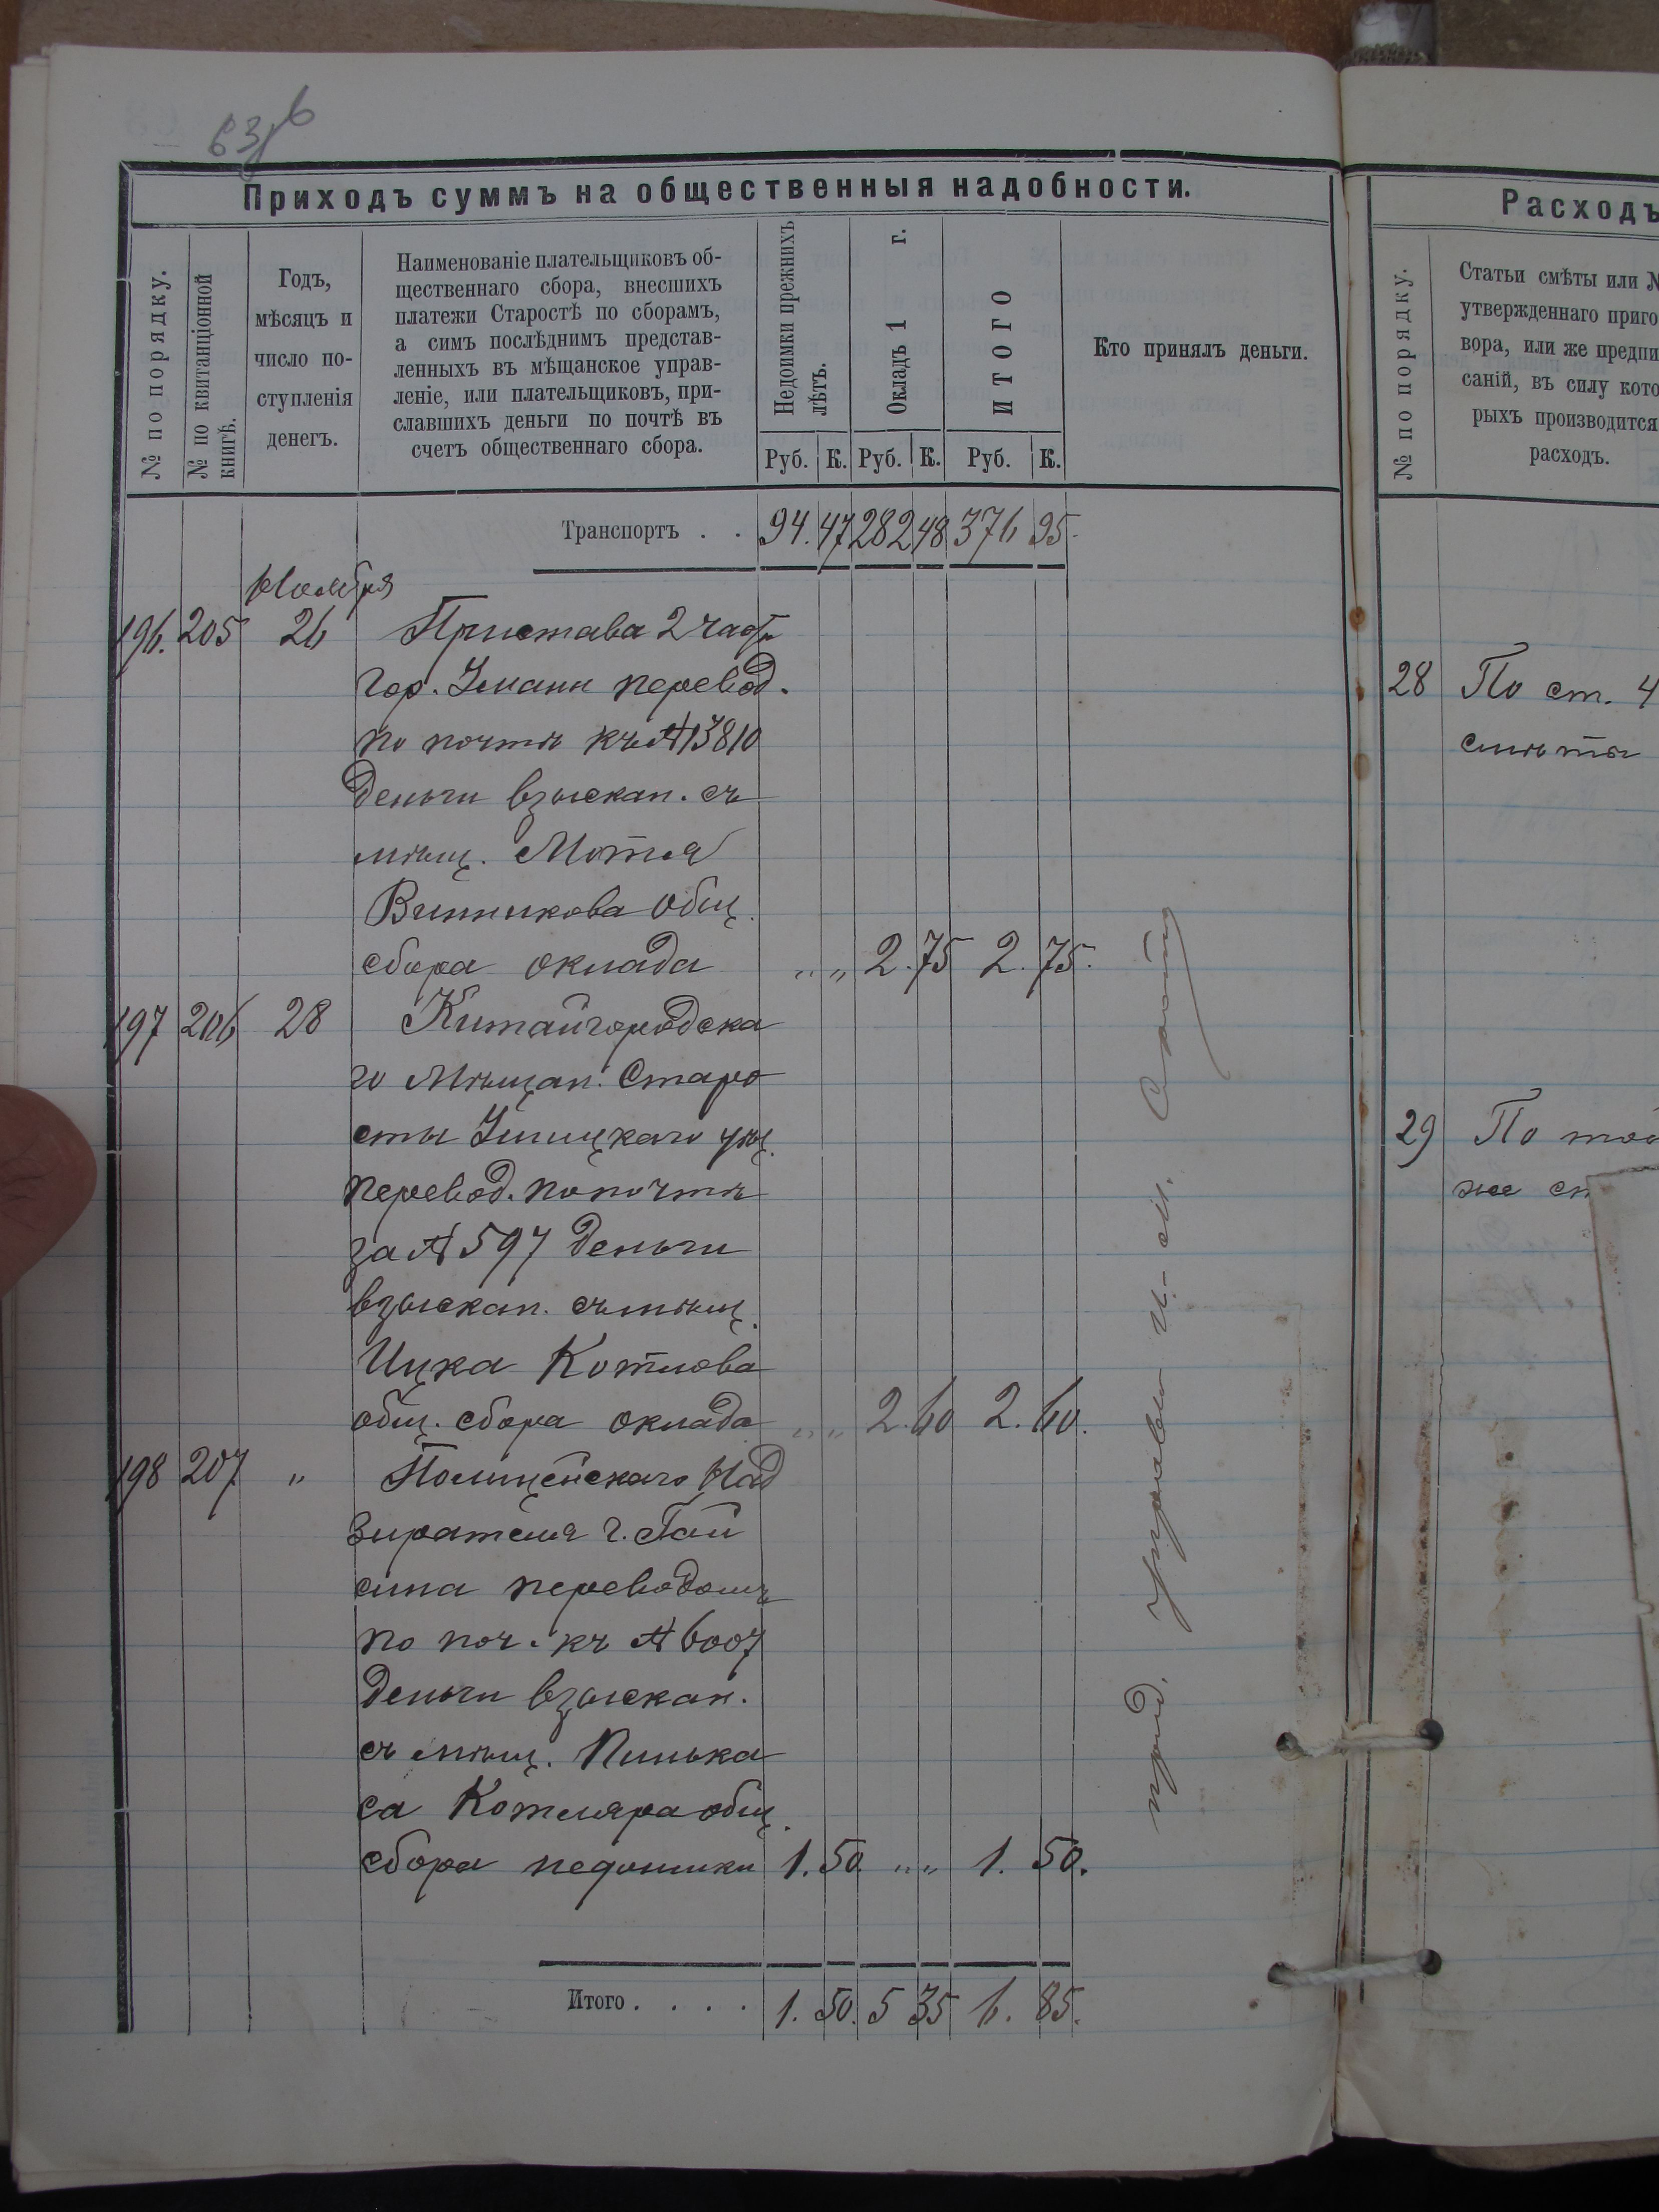 63/б
Приходъ суммъ на общественныя надобности.
№ по порядку.
№ по квитанціонной книгѣ.
Годъ,
мѣсяцъ и
число по-
ступленія
денегъ.
Наименованіе плательщиковъ об-
щественнаго сбора, внесшихъ
платежи Старостѣ по сборамъ,
а симъ послѣднимъ представ-
ленныхъ въ мѣщанское управ-
леніе, или плательщиковъ, при-
славшихъ деньги по почтѣ въ
счетъ общественнаго сбора.
Недоимки прежнихъ лѣтъ.
Окладъ 1 г.
ИТОГО
Кто принялъ деньги.
Руб. К. Руб. К. Руб. К.
Транспортъ . . 94. 47 282 48 376 95.
Ноября
196. 205 26 Пристава 2 част.
гор. Умани перевод.
по почтѣ къ № 13810
деньги взыскан. съ
мѣщ. Мотля
Винникова общ.
сбора оклада „ „ 2. 75 2. 75.
197 206 28 Китайгородска
го Мѣщан. Старо
сты Ушицкаго уѣз.
перевод. по почтѣ
за № 597 деньги
взыскан. съ мѣщ.
Ицка Котлова
общ. сбора оклада „ „ 2. 60 2. 60.
198 207 „ Полицейскаго Над
зирателя г. Гай
сина переводомъ
по поч. къ № 6007
деньги взыскан.
съ мѣщ. Пинька
са Котляра общ.
сбора недоимки 1. 50 „ „ 1. 50.
Итого . . . . 1. 50. 5 35 6. 85.
управы
Расходъ
№ по порядку.
Статьи смѣты или №
утвержденнаго приго
вора, или же предпи
саній, въ силу кото
рыхъ производится
расходъ.
28 По ст. 4
смѣты
29 По той
же ст